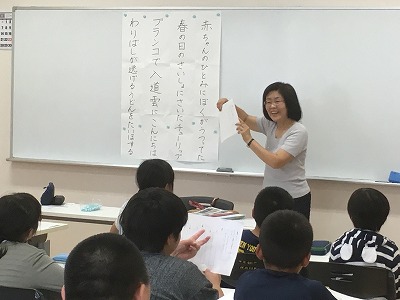 赤ちゃんのひとみにぼくがうつってた
春の日のさいしょにさいたチューリップ
ブランコで入道雲にこんにちは
わりばしが逃げるうどんをたいほする